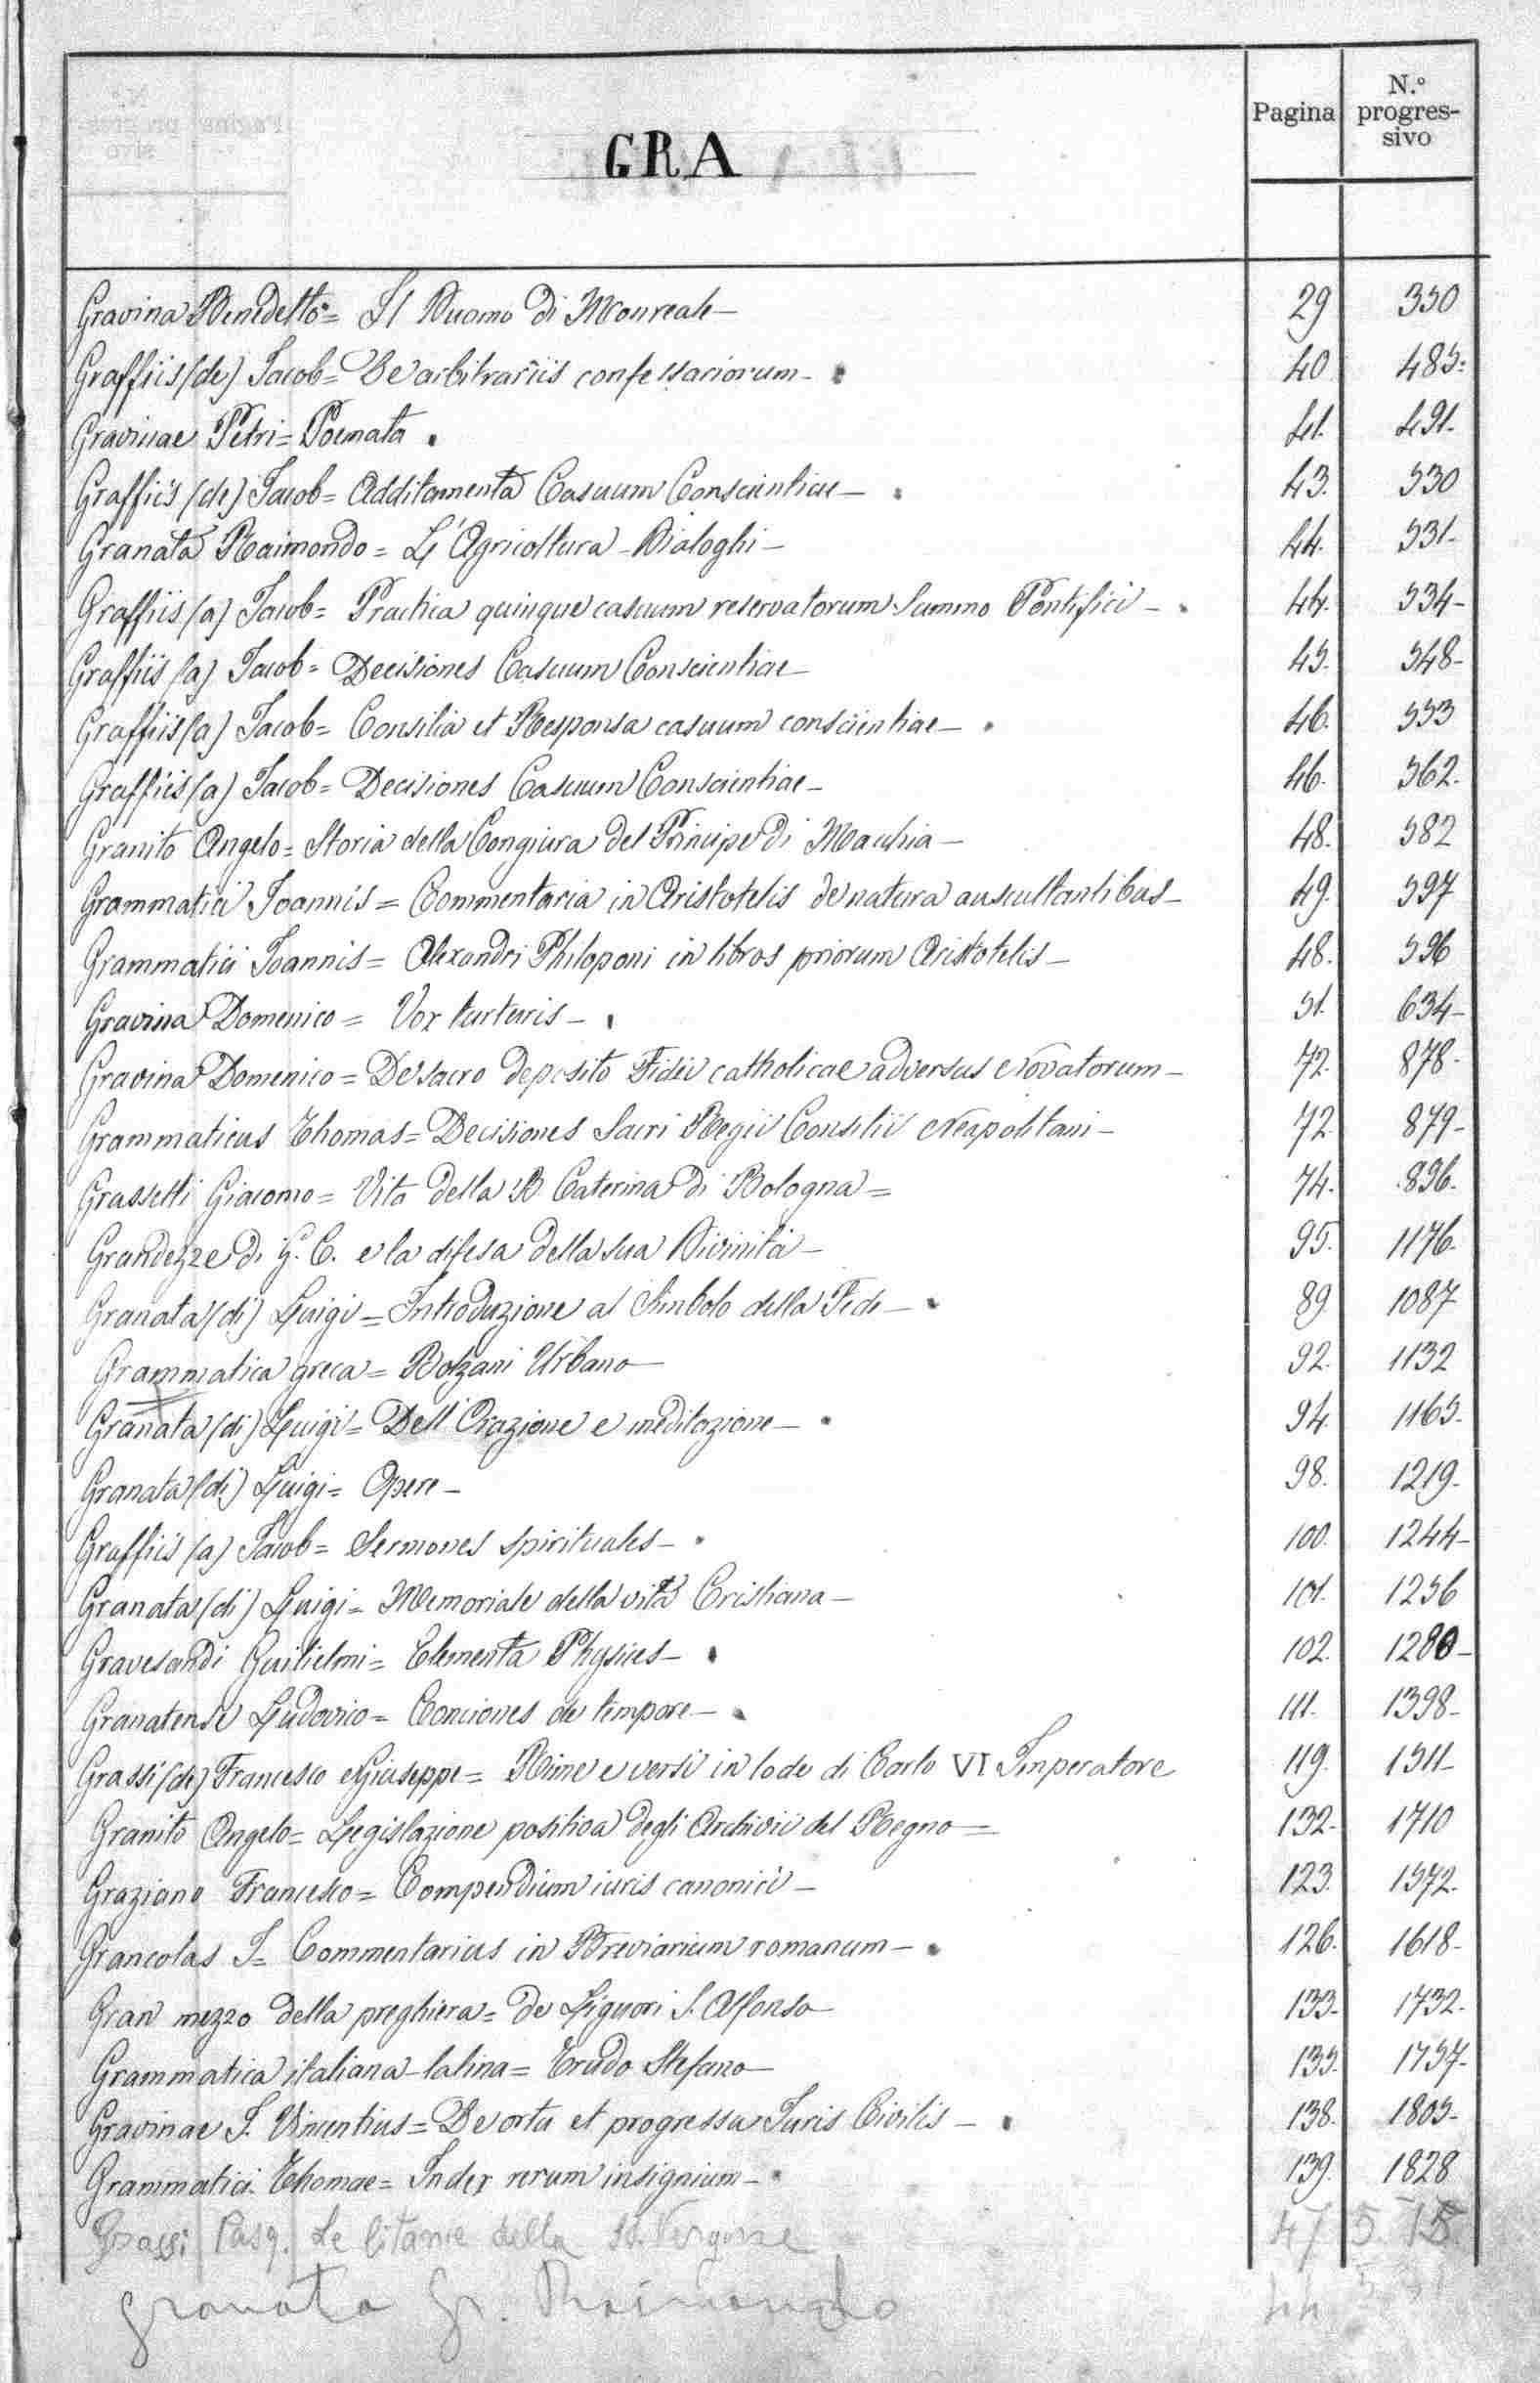 Pagina N.º progres-sivo
GRA
Gravina Benedetto = Il Duomo di Monreale — 29 350
Graffiis (de) Jacob = De arbitrariis confessariorum — 40 485
Gravinae Petri = Poemata. 41. 491.
Graffiis (de) Jacob = Additamenta Casuum Conscientiae — 43. 530
Granata Raimondo = L'Agricoltura - Dialoghi — 44. 531-
Graffiis (a) Jacob = Practica quinque casuum reservatorum Summo Pontifici — 44. 534-
Graffiis (a) Jacob = Decisiones Casuum Conscientiae — 45. 548-
Graffiis (a) Jacob = Consilia et Responsa casuum conscientiae — 46. 553
Graffiis (a) Jacob = Decisiones Casuum Conscientiae — 46. 562.
Granito Angelo = Storia della Congiura del Principe di Macchia — 48. 582
Grammatici Joannis = Commentaria in Aristotelis de natura auscultantibus — 49. 597
Grammatici Joannis = Alexandri Philoponi in libros priorum Aristotelis — 48. 596
Gravina Domenico = Vox turturis — 51. 634-
Gravina Domenico = De sacro deposito Fidei catholicae adversus Novatorum — 72. 878-
Grammaticus Thomas = Decisiones Sacri Regii Consilii Neapolitani — 72. 879-
Grassetti Giacomo = Vita della B Caterina di Bologna = 74. 896.
Grandezze di G. C. e la difesa della sua Divinità — 95. 1176.
Granata (di) Luigi = Introduzione al Simbolo della Fede — 89 1087
Grammatica greca = Bolzani Urbano — 92. 1132
Granata (di) Luigi = Dell'Orazione e meditazione — 94. 1165-
Granata (di) Luigi = Opere — 98. 1219-
Graffiis (a) Jacob = Sermones spirituales — 100. 1244-
Granata (di) Luigi = Memoriale della vita Cristiana — 101. 1256
Gravesandi Guilielmi = Elementa Physices — 102. 1280-
Granatense Ludovico = Conciones de tempore — 111. 1398-
Grassi (de) Francesco e Giuseppe = Rime e versi in lode di Carlo VI Imperatore 119. 1511-
Granito Angelo = Legislazione positiva degli Archivii del Regno = 132- 1710
Graziano Francesco = Compendium iuris canonici — 123. 1572.
Grancolas J = Commentarius in Breviarium romanum — 126. 1618-
Gran mezzo della preghiera = de Liguori S. Alfonso — 133- 1732-
Grammatica italiana-latina = Erudo Stefano — 135. 1757-
Gravinae J. Vincentius = De ortu et progressu Juris Civilis — 138. 1805-
Grammatici Thomae = Index rerum insignium — 139. 1828
Grassi Pasq. Le litanie della SS. Vergine 47 5
Granata Gr. Raimondo 44